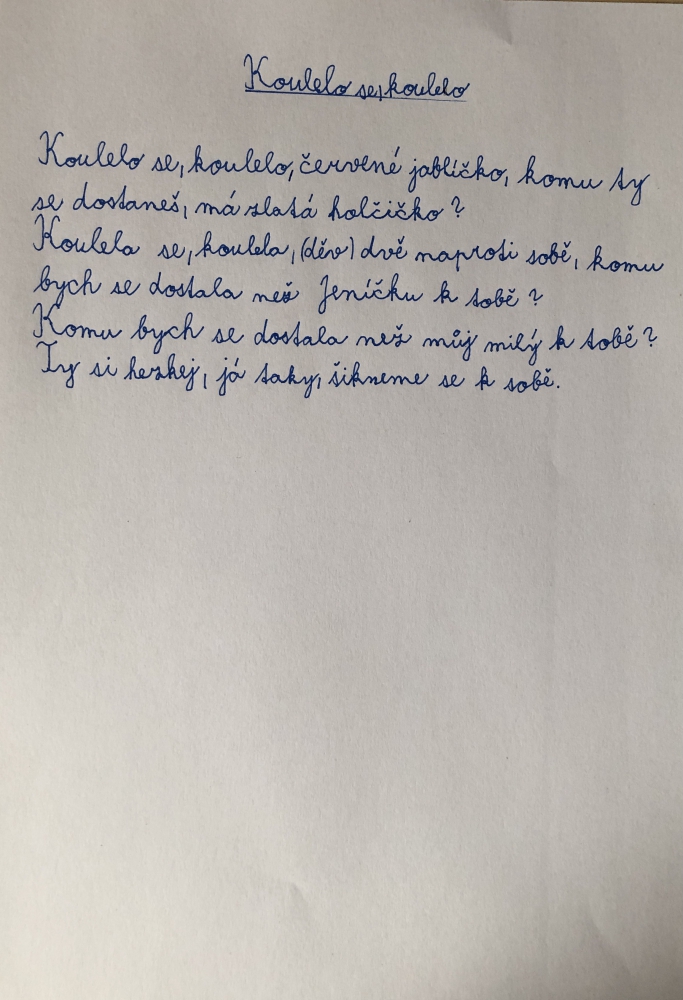 Koulelo se, koulelo
Koulelo se, koulelo, červené jablíčko, komu ty
se dostaneš, má zlatá holčičko?
Koulela se, koulela, (děv) dvě naproti sobě, komu
bych se dostala než Jeníčku k tobě?
Komu bych se dostala než můj milý k tobě?
Ty si hezkej, já taky, šikneme se k sobě.